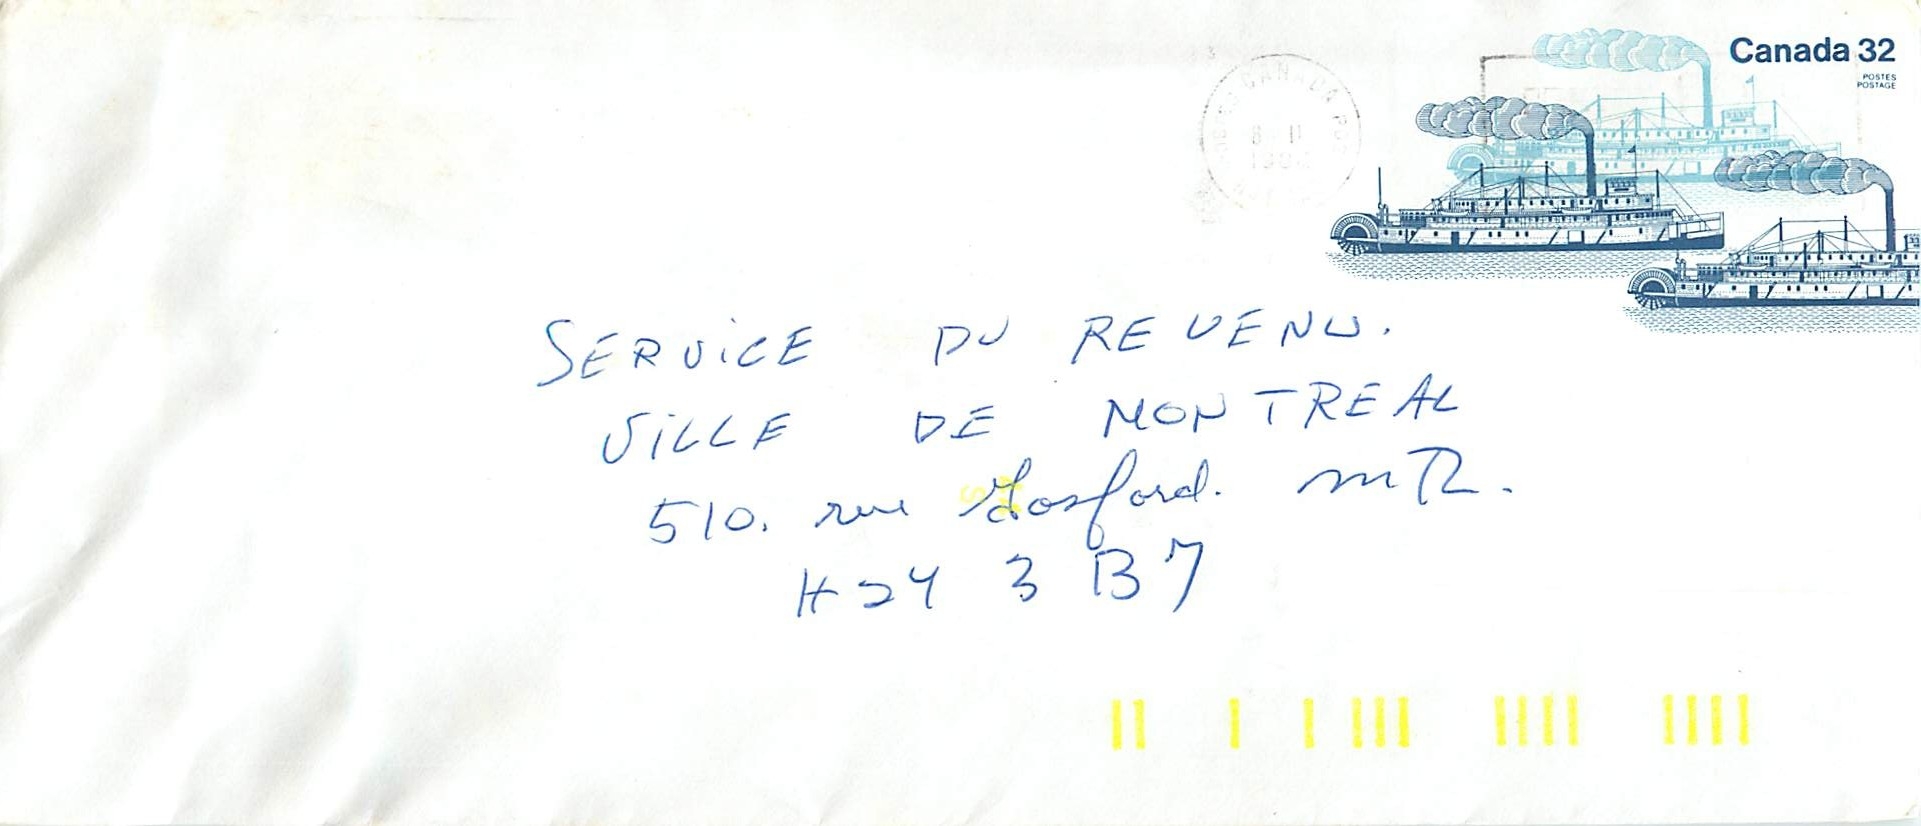 Canada 32
POSTES
POSTAGE
CANADA
SERVICE DU REVENU.
VILLE DE MONTREAL
510. rue Gosford. MTL.
H2Y 3B7